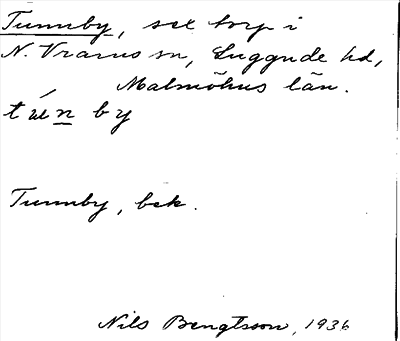 Tunnby, se torp i
N. Vrams sn, Luggude hd,
Malmöhus län.
by
Tunnby, bek.
Nils Bengtsson, 1936